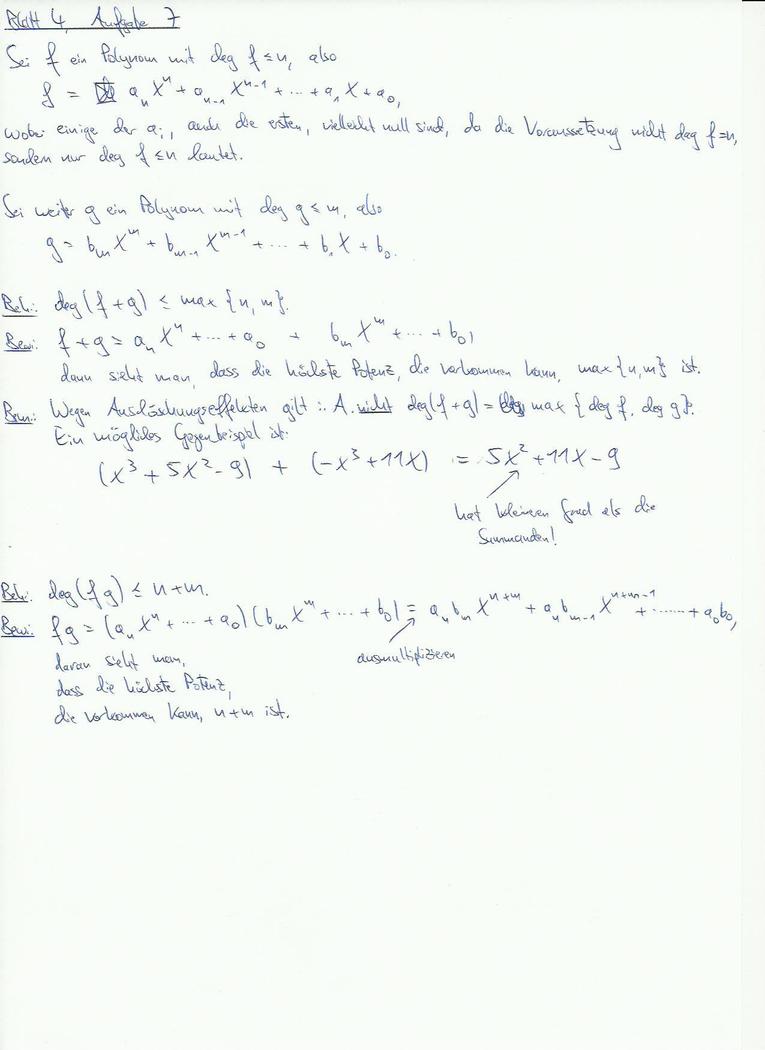 Blatt 4, Aufgabe 7
Sei f ein Polynom mit deg f ≤ n, also
f = aₙXⁿ + aₙ₋₁Xⁿ⁻¹ + ... + a₁X + a₀,
wobei einige der aᵢ, auch die ersten, vielleicht null sind, da die Voraussetzung nicht deg f = n,
sondern nur deg f ≤ n lautet.
Sei weiter g ein Polynom mit deg g ≤ m, also
g = bₘXᵐ + bₘ₋₁Xᵐ⁻¹ + ... + b₁X + b₀.
Beh.: deg(f+g) ≤ max {n, m}.
Bew.: f+g = aₙXⁿ + ... + a₀ + bₘXᵐ + ... + b₀,
dann sieht man, dass die höchste Potenz, die vorkommen kann, max{n,m} ist.
Bem.: Wegen Auslöschungseffekten gilt i. A. nicht deg(f+g) = max {deg f, deg g}.
Ein mögliches Gegenbeispiel ist:
(X³ + 5X² - 9) + (-X³ + 11X) = 5X² + 11X - 9
hat kleineren Grad als die
Summanden!
Beh.: deg(fg) ≤ n+m.
Bew.: fg = (aₙXⁿ + ... + a₀)(bₘXᵐ + ... + b₀) = aₙbₘXⁿ⁺ᵐ + aₙbₘ₋₁Xⁿ⁺ᵐ⁻¹ + ...... + a₀b₀,
ausmultiplizieren
daran sieht man,
dass die höchste Potenz,
die vorkommen kann, n+m ist.